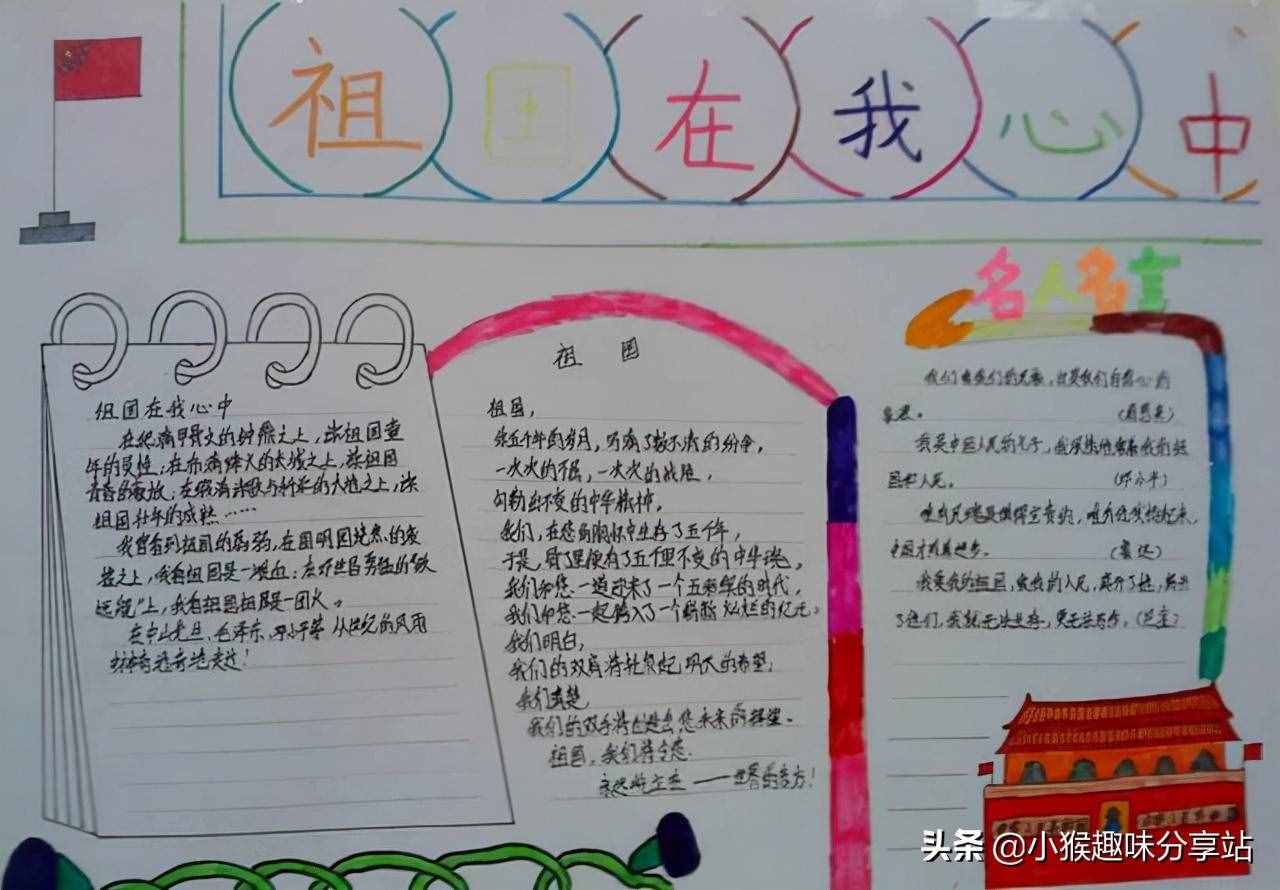 祖国在我心中
祖国在我心中
在纪满甲骨文的钟鼎之上,读祖国童
年的灵性;在布满烽火的长城之上,读祖国
青春的豪放;在缀满诗歌与科学的大地之上,读
祖国壮年的成熟……
我曾看到祖国的孱弱,在圆明园烧焦的废
墟之上,我看祖国是一滩血;在
上,我看祖国是一团火。
在中山先生、毛泽东、邓小平等从世纪的风雨
走过!
祖国
祖国,
五千年的岁月,
一次次的不屈,一次次的
勾勒出不变的中华精神,
我们,在您的胸怀中生存了五千年,
于是,骨里便有了五千里不变的中华魂。
我们和您一道迎来了一个五彩缤纷的时代,
我们和您一起跨入了一个崭新灿烂的纪元。
我们明白,
我们的双肩将扛负起明天的希望;
我们清楚,
我们的双手将创造出您未来的辉煌。
祖国,我们将令您
永远屹立在——世界的东方!
名人名言
(周恩来)
我是中国人民的儿子,我深情地爱着我的祖
国和人民。 (邓小平)
惟有民魂是值得宝贵的,惟有他发扬起来,
中国才有真进步。 (鲁迅)
我爱我的祖国,爱我的人民,离开了她,离开
了他们,我就无法生存,更无法写作。(巴金)
头条 @小猴趣味分享站